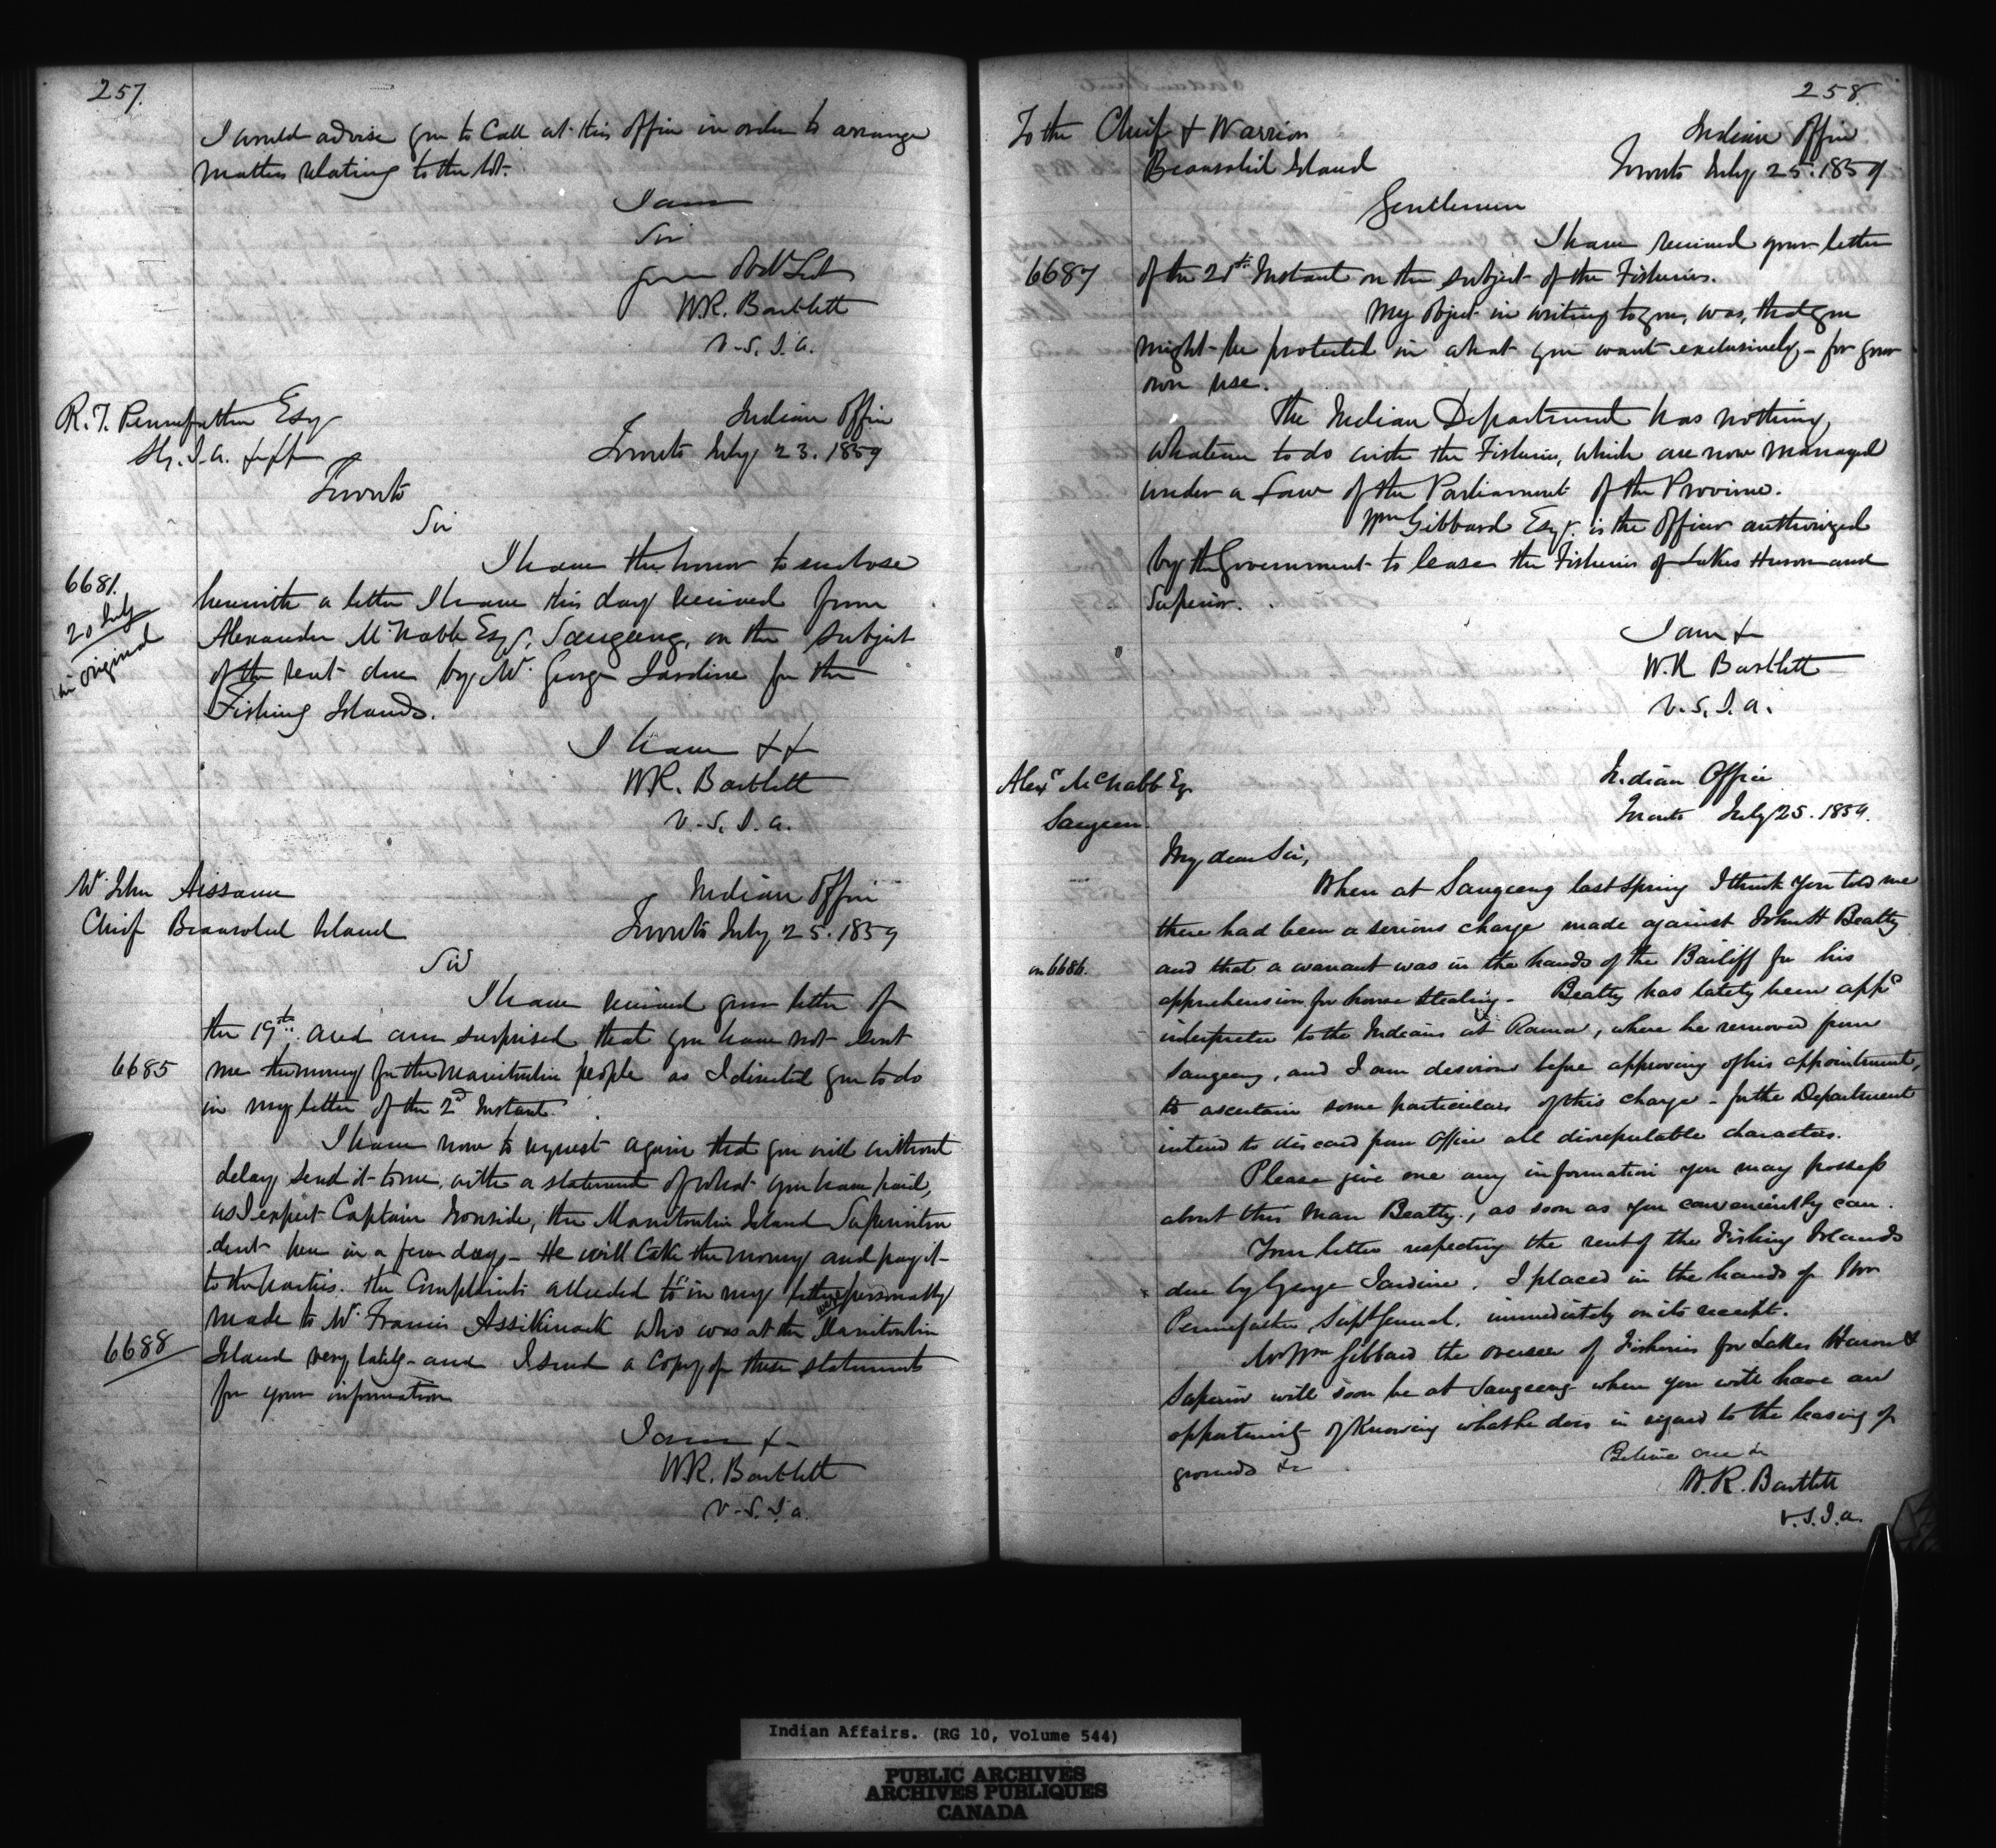 257.
I would advise you to Call at this Office in order to arrange
matters relating to the lot.
I am
Sir
Your Obdt Svt
W.R. Bartlett
V.S.I.A.
R.T. Pennefather Esqr
Indian Office
Toronto July 23. 1859
Toronto
Sir
I have the honor to enclose
6681.
20 July
in original
herewith a letter I have this day received from
Alexander McNabb Esqr, Saugeeng, on the subject
of the rent due by Mr. George Jardine for the
Fishing Islands.
I have &&
W.R. Bartlett
V.S.I.A.
Mr John Aissance
Chief Beausoleil Island
Indian Office
Toronto July 25. 1859
Sir
I have received your letter of
the 19th. and am surprised that you have not sent
6685
me the money for the Manitoulin people as I directed you to do
in my letter of the 2d Instant.
I have now to request again that you will without
delay send it to me, with a statement of what you have paid,
as I expect Captain Ironside, the Manitoulin Island Superinten
dent here in a few days - He will take the money and pay it
to the parties. The Complaints alluded to in my letter were personally
made to Mr Francis Assikinack who was at the Manitoulin
6688
Island very lately - and I send a Copy of these statements
for your information
I am &
W.R. Bartlett
V.S.I.A.
258.
To the Chief & Warriors
Beausoleil Island
Indian Office
Toronto July 25. 1859
Gentlemen
I have received your letter
6687
of the 21st Instant on the subject of the Fisheries.
My Object in writing to you, was, that you
might be protected in what you want exclusively - for your
own use.
The Indian Department has nothing
whatever to do with the Fisheries, which are now managed
under a Law of the Parliament of the Province.
Wm Gibbard Esqr. is the Officer authorized
by the Government to lease the Fisheries of Lakes Huron and
Superior.
I am &
W.R Bartlett
V.S.I.A.
Alexr McNabb Esq.
Saugeen.
Indian Office
Toronto July 25. 1859.
My dear Sir,
When at Saugeeng last Spring I think you told me
there had been a serious charge made against John H Beatty
on 6686.
and that a warrant was in the hands of the Bailiff for his
apprehension for horse Stealing - Beatty has lately been appd
interpreter to the Indians at Rama, where he removed from
Saugeeng, and I am desirous before approving of his appointment,
to ascertain some particulars of this charge - for the Department
intend to discard from Office all disreputable characters.
Please give me any information you may possess
about this man Beatty, as soon as you conveniently can.
Your letter respecting the rent of the Fishing Islands
due by George Jardine. I placed in the hands of Mr
Pennefather, Supt General. immediately on its receipt.
Mr Wm Gibbard the overseer of Fisheries for Lakes Huron &
Superior will soon be at Saugeeng when you will have an
opportunity of knowing what he does in regard to the leasing of
grounds &c
Believe me &c
W.R. Bartlett
V.S.I.A.
Indian Affairs. (RG 10, Volume 544)
PUBLIC ARCHIVES
ARCHIVES PUBLIQUES
CANADA